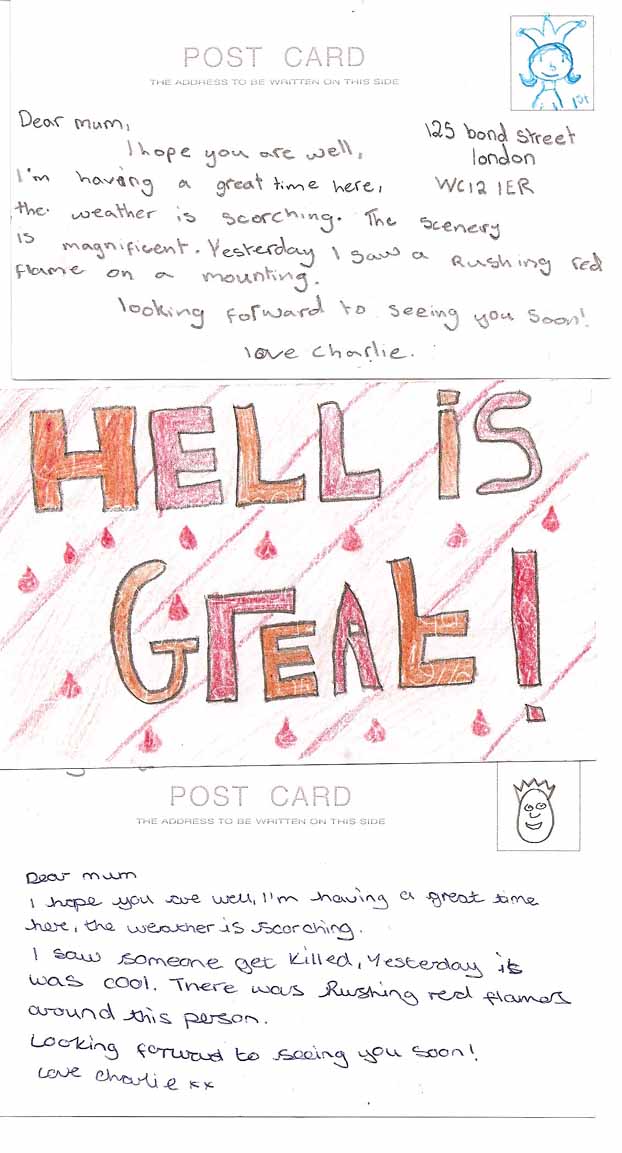 POST CARD
THE ADDRESS TO BE WRITTEN ON THIS SIDE
1st
Dear mum,
I hope you are well,
I'm having a great time here,
the weather is scorching. The scenery
is magnificent. Yesterday I saw a Rushing red
flame on a mounting.
looking forward to seeing you soon!
love charlie.
125 bond street
london
WC12 1ER
HELL iS
GrEAt!
POST CARD
THE ADDRESS TO BE WRITTEN ON THIS SIDE
Dear mum
I hope you are well, I'm having a great time
here, the weather is scorching.
I saw someone get killed, Yesterday it
was cool. There was Rushing red flames
around this person.
Looking forward to seeing you soon!
Love charlie xx